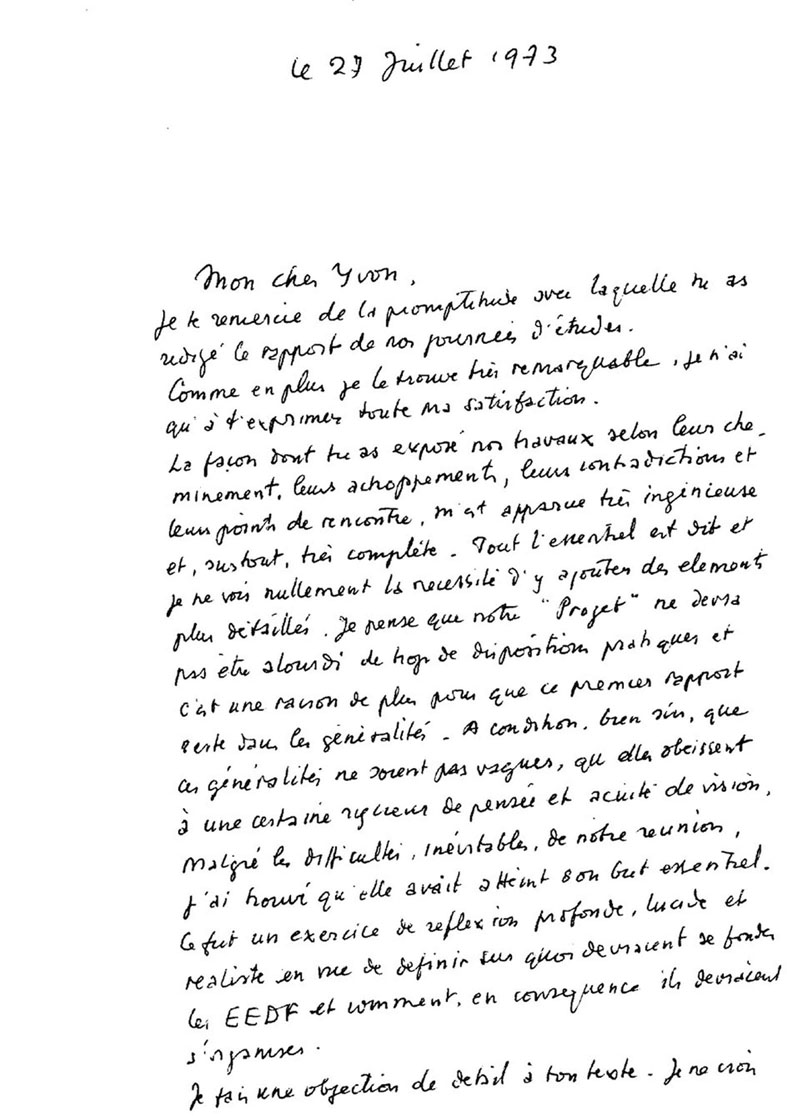 le 27 Juillet 1973
Mon cher Yvon,
Je te remercie de la promptitude avec laquelle tu as
rédigé le rapport de nos journées d'études.
Comme en plus je le trouve très remarquable, je n'ai
qu'à t'exprimer toute ma satisfaction.
La façon dont tu as exposé nos travaux selon leur che-
minement, leurs achoppements, leurs contradictions et
leurs points de rencontre, m'est apparue très ingénieuse
et, surtout, très complète - Tout l'essentiel est dit et
je ne vois nullement la necessité d'y ajouter des elements
plus détaillés. Je pense que notre "Projet" ne devra
pas être alourdi de trop de dispositions pratiques et
c'est une raison de plus pour que ce premier rapport
reste dans les généralités - A condition, bien sûr, que
ces généralités ne soient pas vagues, qu'elles obeissent
à une certaine rigueur de pensée et acuité de vision,
Malgré les difficultés, inévitables, de notre reunion,
j'ai trouvé qu'elle avait atteint son but essentiel.
Ce fut un exercice de reflexion profonde, lucide et
realiste en vue de definir sur quoi devraient se fonder
les EEDF et comment, en consequence ils devraient
s'organiser.
Je fais une objection de detail à ton texte - Je ne crois